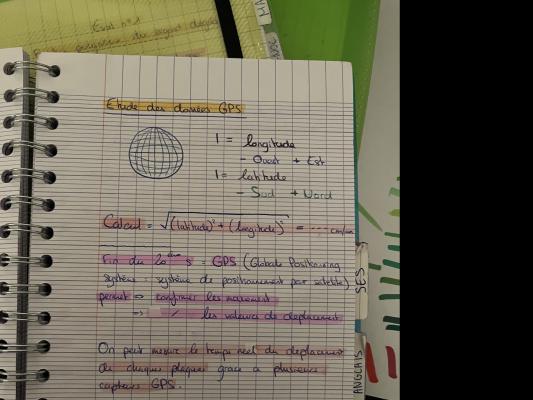 Eval n°1
Etude des données GPS
1 = longitude
- Ouest + Est
1 = latitude
- Sud + Nord
Calcul = √(latitude)² + (longitude)² = --- cm/an
Fin du 20ème s = GPS (Globale Positionning
système : système de positionnement par satelite)
permet => confirmer les mouvements
=> / les valeurs de deplacement
On peut mesurer le temps réel du deplacement
de chaques plaques grace a plusieurs
capteurs GPS.
SES
ANGLAIS